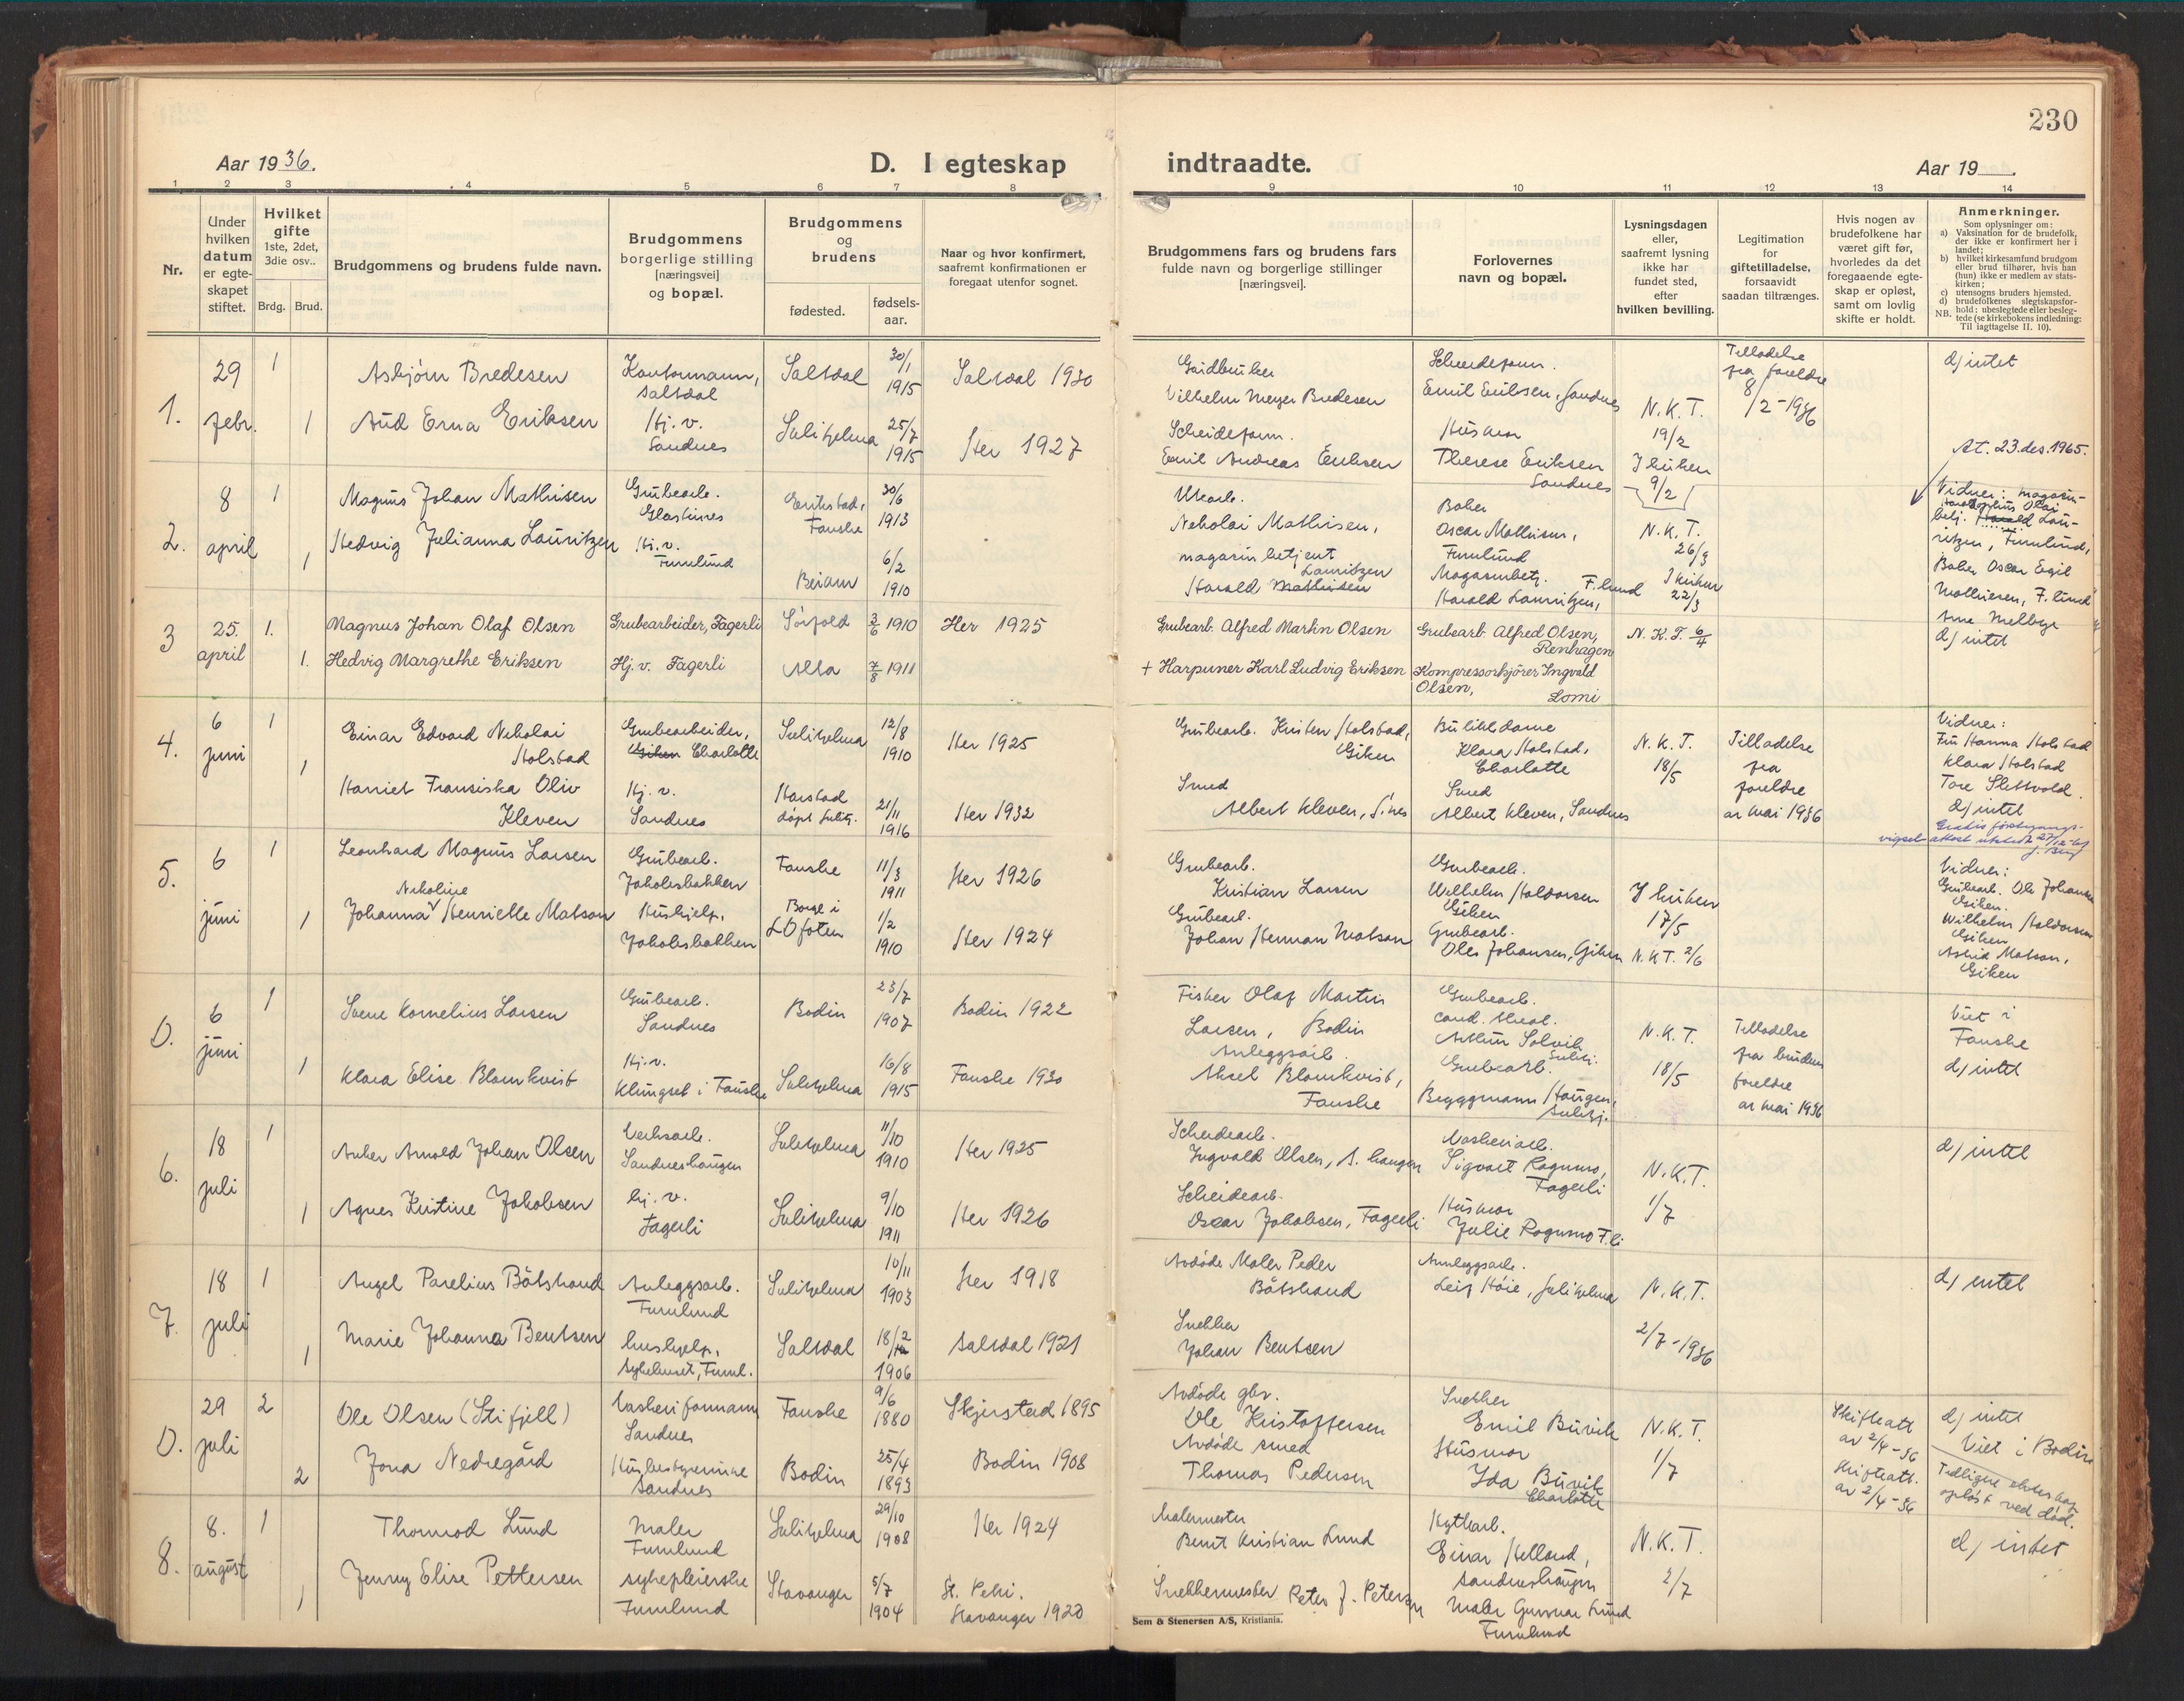 230
Aar 1936.
D. I egteskap indtraadte.
Aar 19
1 2 3 4 5 6 7 8 9 10 11 12 13 14
Nr.
Under hvilken datum er egte-skapet stiftet.
Hvilket gifte 1ste, 2det, 3die osv..
Brdg. Brud.
Brudgommens og brudens fulde navn.
Brudgommens borgerlige stilling [næringsvei] og bopæl.
Brudgommens og brudens
fødested. fødsels-aar.
Naar og hvor konfirmert, saafremt konfirmationen er foregaat utenfor sognet.
Brudgommens fars og brudens fars fulde navn og borgerlige stillinger [næringsvei].
Forlovernes navn og bopæl.
Lysningsdagen eller, saafremt lysning ikke har fundet sted, efter hvilken bevilling.
Legitimation for giftetilladelse, forsaavidt saadan tiltrænges.
Hvis nogen av brudefolkene har været gift før, hvorledes da det foregaaende egte-skap er opløst, samt om lovlig skifte er holdt.
Anmerkninger.
Som oplysninger om:
a) Vaksination for de brudefolk, der ikke er konfirmert her i landet;
b) hvilket kirkesamfund brudgom eller brud tilhører, hvis han (hun) ikke er medlem av stats-kirken;
c) utensogns bruders hjemsted.
d) brudefolkenes slegtskapsfor-hold: ubeslegtede eller besleg-tede (se kirkebokens indledning: Til iagttagelse II. 10).
NB.
1. 29 febr. 1
Asbjørn Bredesen
Kontormann, Saltdal
Saltdal 30/1 1915
Saltdal 1930
Gårdbruker
Vilhelm Meyer Bredesen
Scheideform.
Emil Eriksen, Sandnes
N.K.T. 19/2
Tilladelse fra foreldre 8/2-1936
d) intet
1 Aud Erna Eriksen
Hj. v. Sandnes
Sulitjelma 25/7 1915
Her 1927
Scheideform.
Emil Andreas Eriksen
Husmor
Therese Eriksen
Sandnes
I kirken 9/2
At. 23.des.1965.
2. 8 april 1
Magnus Johan Mathisen
Grubearb.
Glastunes
Erikstad, Fauske 30/6 1913
Nikolai Mathisen,
Baker
Oscar Mathisen,
Furulund
N.K.T. 26/3
Vidner: magasin-
1 Hedvig Julianna Lauritzen
Hj. v. Furulund
Beiarn 6/2 1910
magasinbetjent
Lauritzen
Harald Mathisen
Magasinbetj.
Harald Lauritzen, F.lund
I kirken 22/3
ritzen, Furulund,
Baker Oscar Egil
Mathisen, F.lund
Arne Mellbye
3 25. april 1.
Magnus Johan Olaf Olsen
Grubearbeider, Fagerli
Sørfold 2/6 1910
Her 1925
Grubearb. Alfred Martin Olsen
Grubearb. Alfred Olsen, Renhagen
N. K. T. 6/4
d) intet
1. Hedvig Margrethe Eriksen
Hj. v. Fagerli
Alta 7/8 1911
+ Harpuner Karl Ludvig Eriksen
Kompressorkjører Ingvald Olsen, Lomi
4. 6 juni 1
Einar Edvard Nikolai Holstad
Grubearbeider,
Giken Charlotte
Sulitjelma 12/8 1910
Her 1925
Grubearb. Kristen Holstad, Giken
Butikkdame
Klara Holstad, Charlotte
N.K.T. 18/5
Tilladelse fra foreldre av mai 1936
Vidner:
Fru Hanna Holstad
Klara Holstad
Tore Slettvold.
d) intet
1 Harriet Fransiska Oliv Kleven
Hj. v. Sandnes
Harstad døpt Sulitj. 21/11 1916
Her 1932
Smed
Albert Kleven, S.nes
Smed
Albert Kleven, Sandnes
5. 6 juni 1
Leonhard Magnus Larsen
Grubearb.
Jakobsbakken
Fauske 11/3 1911
Her 1926
Grubearb.
Kristian Larsen
Grubearb.
Wilhelm Haldorsen
Giken
I kirken 17/5
Vidner:
Grubearb. Ole Johansen
Giken.
Wilhelm Haldorsen
Giken
Astrid Matson,
Giken
1 Nikoline
Johanna Henriette Matson
Hushjelp,
Jakobsbakken
Borge i Lofoten 1/2 1910
Her 1924
Grubearb.
Johan Herman Matson
Grubearb.
Oles Johansen, Giken
N.K.T. 2/6
0. 6 juni 1
Svene Kornelius Larsen
Grubearb.
Sandnes
Bodin 23/7 1907
Bodin 1922
Fisker Olaf Martin
Larsen, Bodin
Grubearb.
cand. theol.
Arthur Solvik
Sulitj.
N.K.T. 18/5
Tilladelse fra brudens foreldre av mai 1936
Viet i Fauske
d) intet
1 Klara Elise Blomkvist
Hj. v.
Klungset i Fauske
Sulitjelma 16/8 1915
Fauske 1930
Anleggsarb.
Aksel Blomkvist,
Fauske
Grubearb.
Bryggmann Haugen,
Sulitj.
6. 18 juli 1
Anker Arnold Johan Olsen
Verksarb.
Sandneshaugen
Sulitjelma 11/10 1910
Her 1925
Scheidearb.
Ingvald Olsen, S. haugen
Vaskeriarb.
Sigvart Rognmo,
Fagerli
N.K.T. 1/7
d) intet
1 Agnes Kristine Jakobsen
hj. v.
Fagerli
Sulitjelma 9/10 1911
Her 1926
Scheidearb.
Oscar Jakobsen, Fagerli
Husmor
Julie Rognmo F.li
7. 18 juli 1
Angel Parelius Båtstrand
Anleggsarb.
Furulund
Sulitjelma 10/11 1903
Her 1918
Avdøde Maler Peder
Båtstrand
Annleggsarb.
Leif Høie, Sulitjelma
N.K.T. 2/7-1936
d) intet
1 Marie Johanna Bentsen
hushjelp,
Sykehuset, Furul.
Saltdal 18/2 1906
Saltdal 1921
Snekker
Johan Bentsen
0. 29 juli 2
Ole Olsen (Stifjell)
Vaskeriformann
Sandnes
Fauske 9/6 1880
Skjerstad 1895
Avdøde gbr.
Ole Kristoffersen
Snekker
Emil Burvik
N.K.T. 1/7
Skifteatt av 2/4-36
d) intet
Viet i Bodin
2 Jona Nedregård
Husbestyrerinne
Sandnes
Bodin 25/4 1893
Bodin 1908
Avdøde smed
Thomas Pedersen
Husmor
Ida Burvik
Charlotte
Skifteatt. av 2/4-36
Tidligere ekteskap opløst ved død.
8. 8. august 1
Thormod Lund
Maler
Furulund
Sulitjelma 29/10 1908
Her 1924
Malermester
Bernt Kristian Lund
Hytterb.
Einar Helland,
Sandneshaugen
N.K.T. 2/7
d) intet
1 Jenny Elise Pettersen
sykepleierske
Furulund
Stavanger 5/7 1904
St. Petri.
Stavanger 1920
Snekkermester Peter J. Petersen
Maler Gunnar Lund
Furulund
Sem & Stenersen A/S, Kristiania.